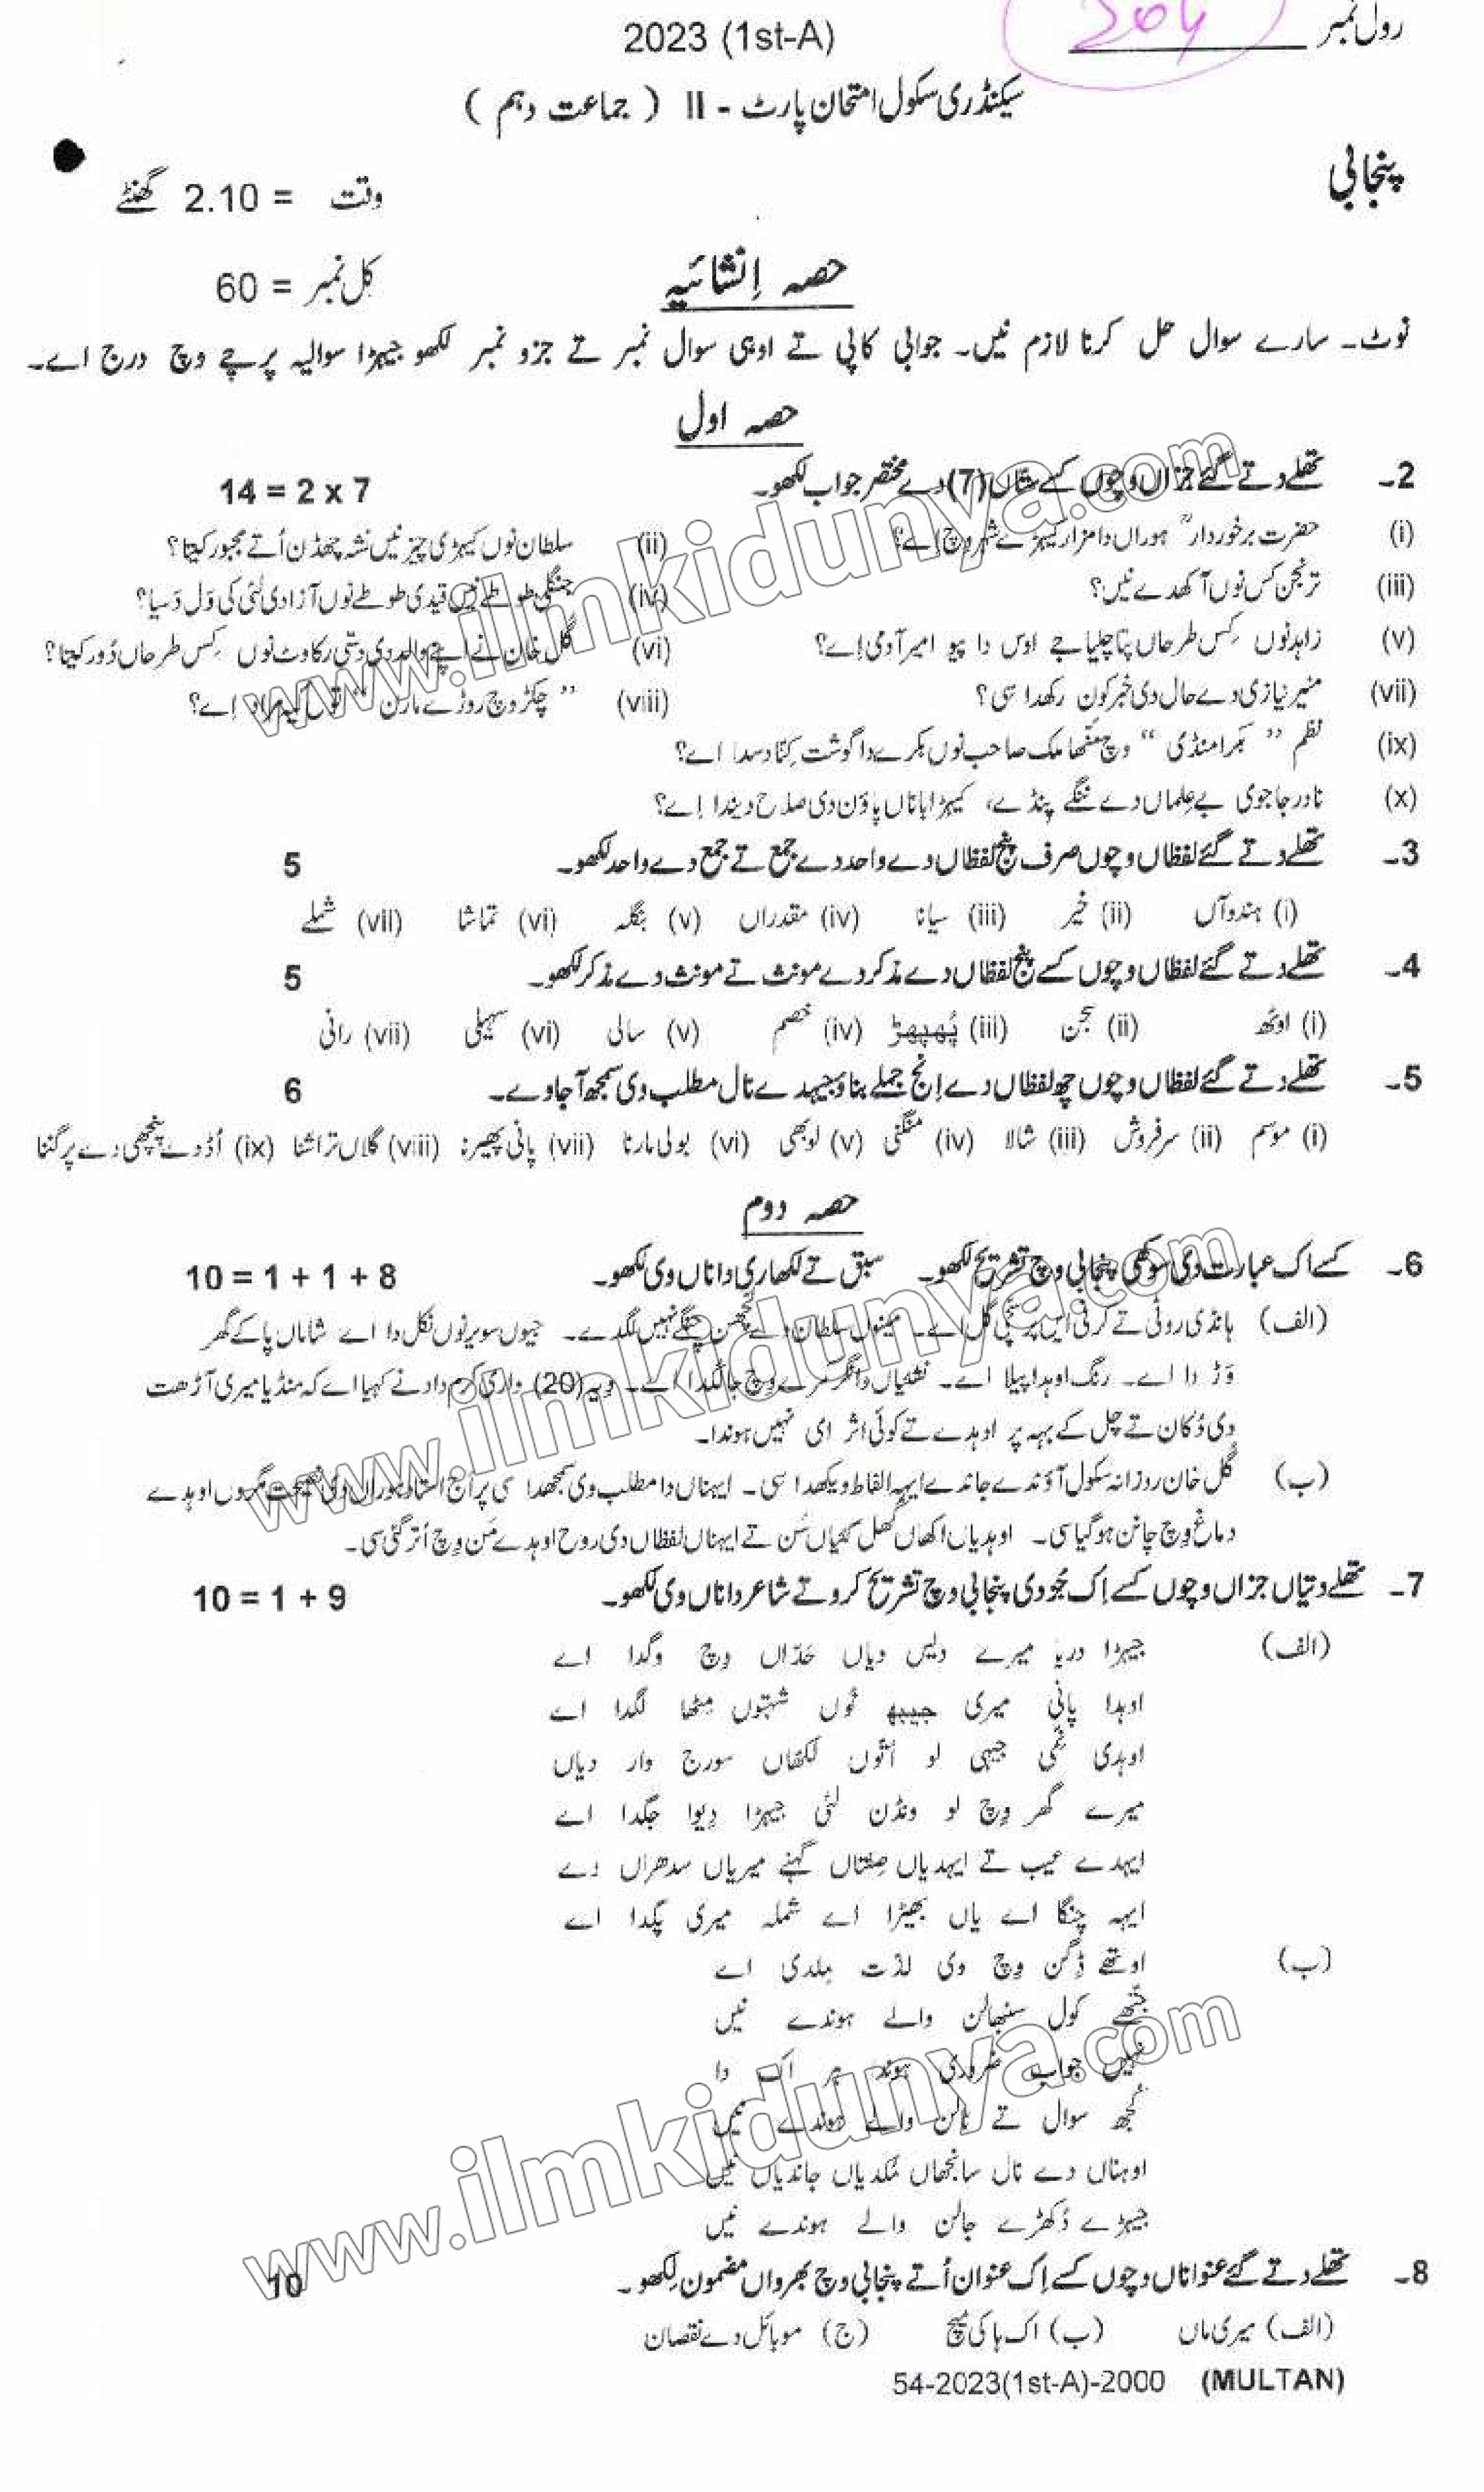 رول نمبر
2023 (1st-A)
سیکنڈری سکول امتحان پارٹ - II ( جماعت دہم )
پنجابی
وقت = 2.10 گھنٹے
حصہ اِنشائیہ
کل نمبر = 60
نوٹ۔ سارے سوال حل کرنا لازم نیں۔ جوابی کاپی تے اوہی سوال نمبر تے جزو نمبر لکھو جیہڑا سوالیہ پرچے وچ درج اے۔
حصہ اول
2۔ تھلے دتے گئے جزاں وچوں کسے ستاں (7) دے مختصر جواب لکھو۔ 14 = 2 x 7
(i) حضرت برخوردارؒ ہوراں دا مزار کیہڑے شہر وچ اے؟ (ii) سلطان نوں کیہڑی چیز نیں نشہ چھڈن اُتے مجبور کیتا؟
(iii) ترنجن کس نوں آکھدے نیں؟ (iv) جنگلی طوطے نیں قیدی طوطے نوں آزادی لئی کی وَل دَسیا؟
(v) زاہد نوں کِس طرحاں پتا چلیا جے اوس دا پیو امیر آدمی اے؟ (vi) گل خان نے اپنے والد دی دتی رکاوٹ نوں کِس طرحاں دُور کیتا؟
(vii) منیر نیازی دے حال دی خبر کون رکھدا سی؟ (viii) ” چکڑ وچ روڑے مارن “ توں کیہ مراد اے؟
(ix) نظم ” بکرا منڈی “ وچ مٹھا ملک صاحب نوں بکرے دا گوشت کِنا دسدا اے؟
(x) نادر جاجوی بے عِلماں دے ننگے پنڈے، کیہڑا بانا پاؤن دی صلاح دیندا اے؟
3۔ تھلے دتے گئے لفظاں وچوں صرف پنج لفظاں دے واحد دے جمع تے جمع دے واحد لکھو۔ 5
(i) ہندوآں (ii) خیر (iii) سیانا (iv) مقدراں (v) بنگلہ (vi) تماشا (vii) شملے
4۔ تھلے دتے گئے لفظاں وچوں کسے پنج لفظاں دے مذکر دے مونث تے مونث دے مذکر لکھو۔ 5
(i) اوٹھ (ii) سجن (iii) پُھپھڑ (iv) خصم (v) سالی (vi) سہیلی (vii) رانی
5۔ تھلے دتے گئے لفظاں وچوں چھ لفظاں دے اِنج جملے بناؤ جیہدے نال مطلب وی سمجھ آ جاوے۔ 6
(i) موسم (ii) سرفروش (iii) شالا (iv) منگنی (v) لوبھی (vi) بولی مارنا (vii) پانی پھیرنا (viii) گلاں تراشنا (ix) اُڈدے پنچھی دے پر گننا
حصہ دوم
6۔ کسے اک عبارت دی سوکھی پنجابی وچ تشریح لکھو۔ سبق تے لکھاری دا ناں وی لکھو۔ 10 = 1 + 1 + 8
(الف) ہانڈی روٹی تے کرنی ایں پر سچی گل اے۔ مینوں سلطان دے لچھن چنگے نہیں لگدے۔ جیوں سویر نوں نکل دا اے شاماں پا کے گھر
وَڑ دا اے۔ رنگ اوہدا پیلا اے۔ نشئیاں وانگر سرے وچ جاگدا اے۔ ویہ (20) واری کرم داد نے کہیا اے کہ منڈیا میری آڑھت
دی دُکان تے چل کے بہہ پر اوہدے تے کوئی اثر ای نہیں ہوندا۔
(ب) گل خان روزانہ سکول آؤندے جاندے ایہہ الفاظ ویکھدا سی۔ ایہناں دا مطلب وی سمجھدا سی پر اج استاد ہوراں دی نصیحت مگروں اوہدے
دماغ وِچ چانن ہو گیا سی۔ اوہدیاں اکھاں کُھل گئیاں سَن تے ایہناں لفظاں دی روح اوہدے مَن وِچ اُتر گئی سی۔
7۔ تھلے دتیاں جزاں وچوں کسے اِک جُزو دی پنجابی وچ تشریح کرو تے شاعر دا ناں وی لکھو۔ 10 = 1 + 9
(الف) جیہڑا دریا میرے دیس دیاں حَدّاں وِچ وگدا اے
اوہدا پانی میری جیبھ نُوں شہتوں مِٹھا لگدا اے
اوہدی نِمّی جیہی لو اُتّوں لکھّاں سورج وار دیاں
میرے گھر وِچ لو ونڈن لئی جیہڑا دِیوا جگدا اے
ایہدے عیب تے ایہدیاں صِفتاں گہنے میریاں سدھراں دے
ایہہ چنگا اے یاں بھیڑا اے شملہ میری پگدا اے
(ب) اوتھے ڈِگن وِچ وی لذّت مِلدی اے
جِتھّے کول سنبھالن والے ہوندے نیں
نہیں جواب ضروری ہوندا ہر اک دا
کُجھ سوال تے ٹالن والے ہوندے نیں
اوہناں دے نال سانجھاں مُکدیاں جاندیاں نیں
جیہڑے دُکھڑے جالن والے ہوندے نیں
8۔ تھلے دتے گئے عنواناں وچوں کسے اِک عنوان اُتے پنجابی وچ بھرواں مضمون لِکھو۔ 10
(الف) میری ماں (ب) اک ہاکی میچ (ج) موبائل دے نقصان
54-2023(1st-A)-2000 (MULTAN)
www.ilmkidunya.com
www.ilmkidunya.com
www.ilmkidunya.com